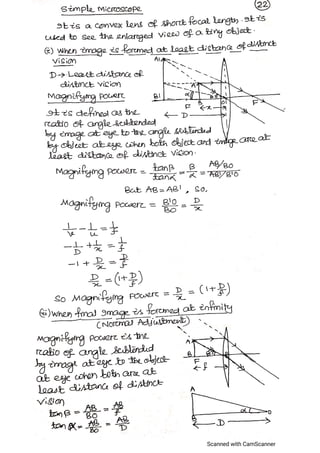 (22)
Simple Microscope
It is a convex lens of short focal length. It is
used to see the enlarged view of a tiny object.
(i) When image is formed at least distance of distinct
vision
D → Least distance of
distinct vision
Magnifying power
It is defined as the
ratio of angle subtended
by image at eye to the angle subtended
by object at eye when both object and image are at
least distance of distinct vision.
Magnifying power = tanβ/tanα = β/α = AB/BO / AB'/B'O
But AB = AB', So,
Magnifying power = B'O/BO = D/x
1/v - 1/u = 1/f
-1/D + 1/x = 1/f
-1 + D/x = D/f
D/x = (1+D/f)
So Magnifying power = D/x = (1+D/f)
(ii) When final image is formed at infinity
(Normal Adjustment)
Magnifying power is the
ratio of angle subtended
by image at eye to the object
at eye when both are at
least distance of distinct
vision
tanβ = AB/BO = AB/f
tanα = AB/BO = AB/D
A
α
D
Scanned with CamScanner